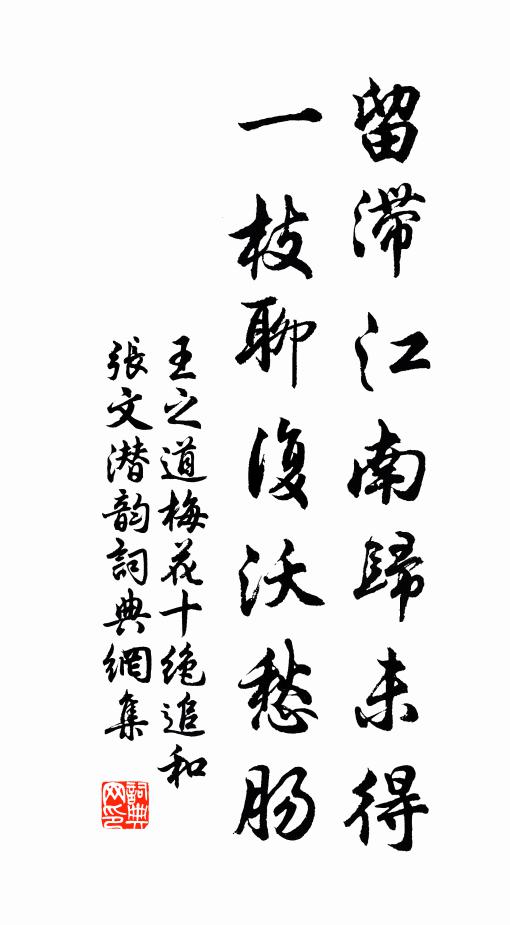 留滞江南歸未得
一枝聊復沃愁肠
王之道梅花十绝追和
張文潜韵詞典網集
詞典网印